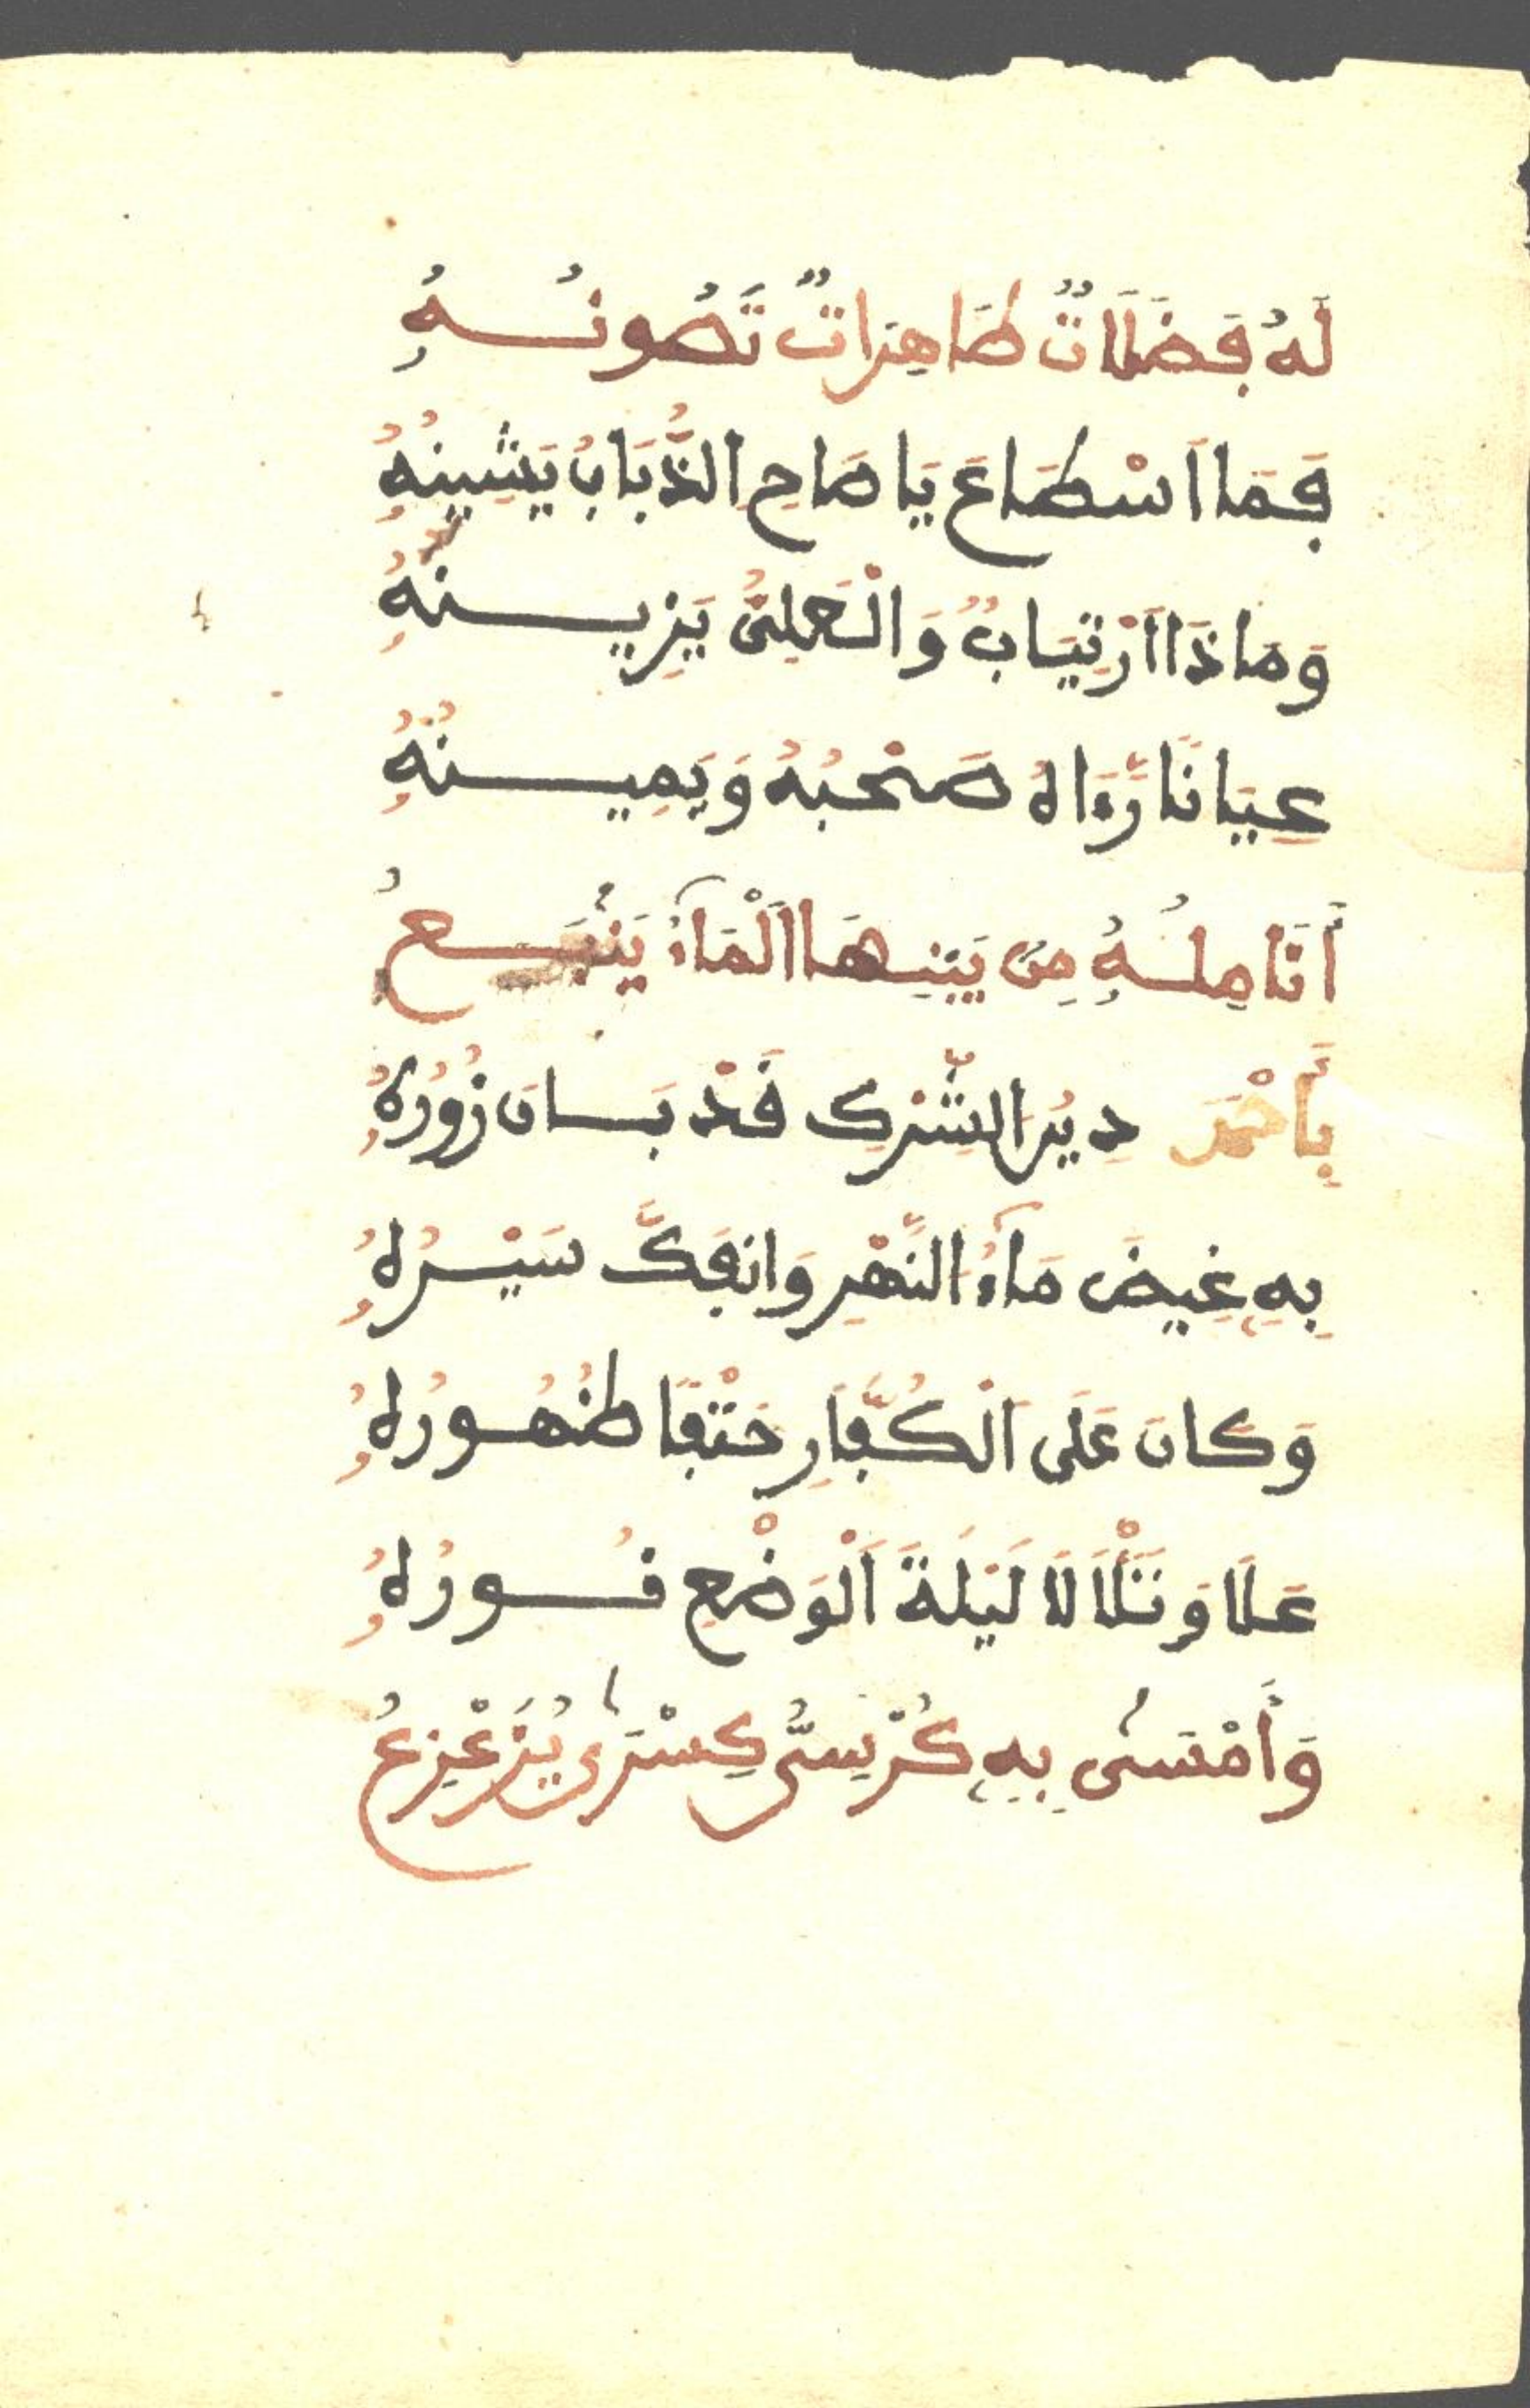 لَهُ فَضَلَاتٌ طَاهِرَاتٌ تَصُونُهُ
فَمَا اَسْطَاعَ يَا صَاحِ الذُّبَابُ يَشِينُهُ
وَمَاذَا اَرْتِيَابٌ وَالْحُلِىُّ يَزِينُهُ
عِيَانًا رَّءَاهُ صَحْبُهُ وَيَمِينُهُ
أَنَامِلُهُ مِن بَيْنِهَا اَلْمَآءُ يَنْبَعُ
بِأَحْمَدَ دِينُ الشِّرْكِ قَدْ بَانَ زُورُهُ
بِهِ غِيضَ مَآءُ النَّهْرِ وَانفَكَّ سَيْرُهُ
وَكَانَ عَلَى اَلْكُفَّارِ حَتْفًا ظُهُورُهُ
عَلَا وَتَلَأْلَا لَيْلَةَ اَلْوَضْعِ نُورُهُ
وَأَمْسَى بِهِ كُرْسِىُّ كِسْرَى يُزَعْزِعُ